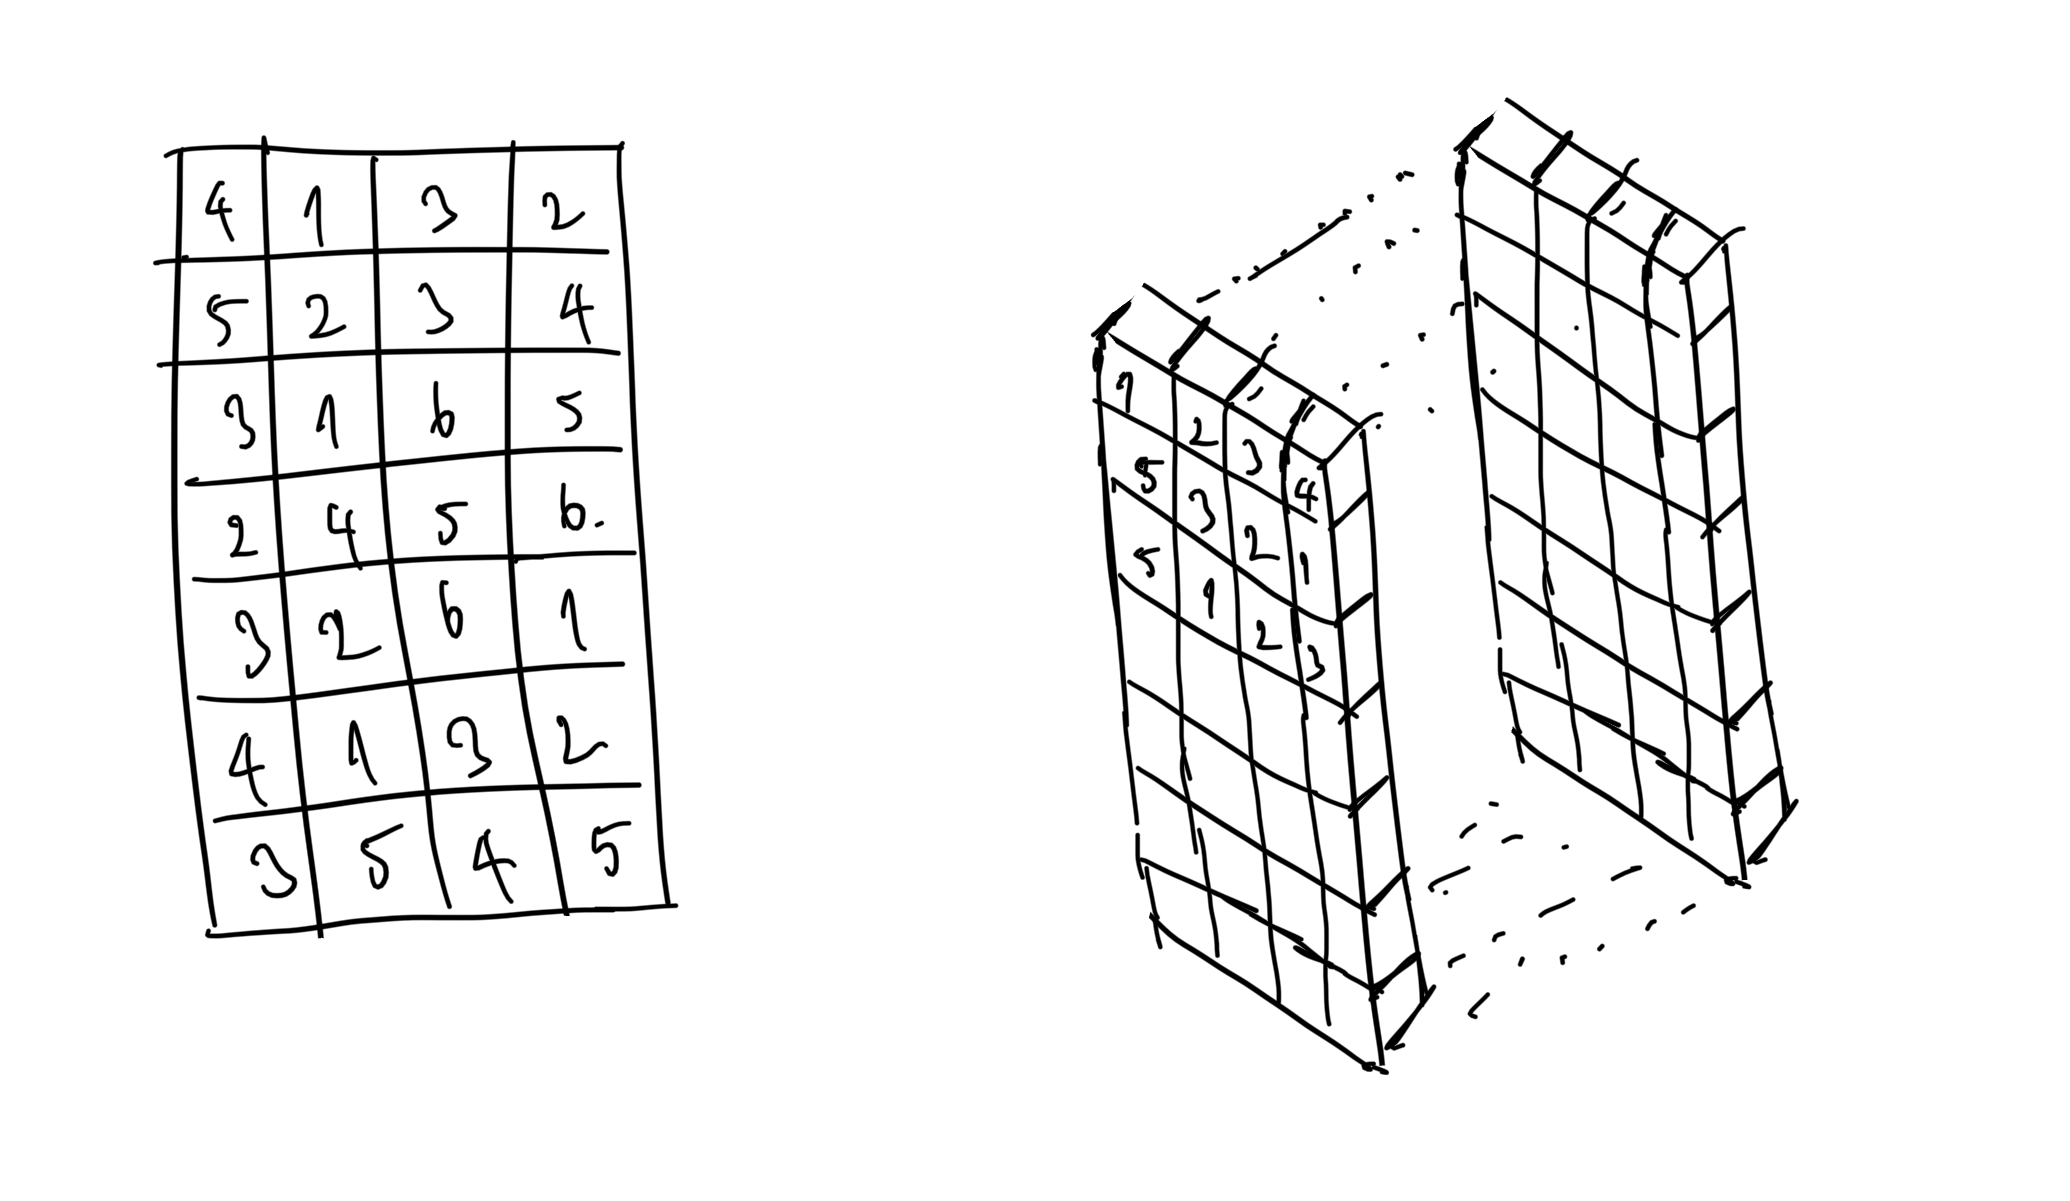 4 1 3 2
5 2 3 4
3 1 6 5
2 4 5 6.
3 2 6 1
4 1 3 2
3 5 4 5
1 2 3 4
5 3 2 1
5 1 2 3